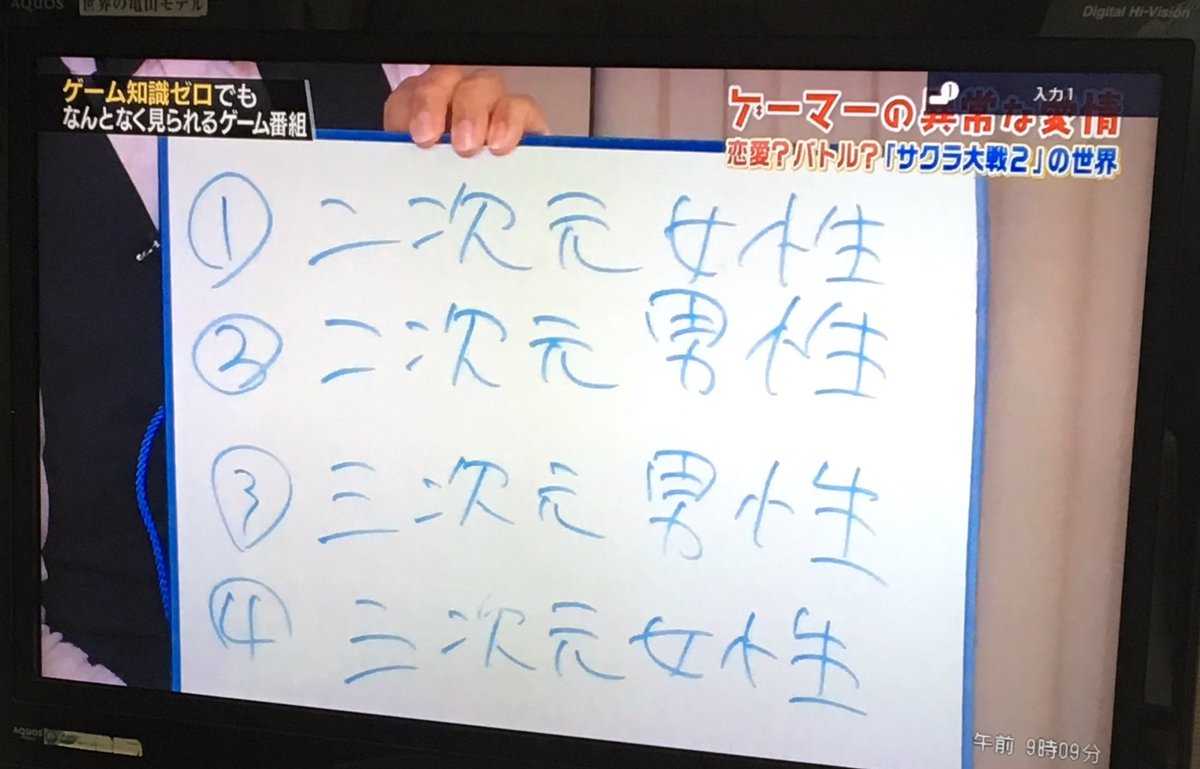 AQUOS
世界の亀山モデル
Digital Hi-Vision
ゲーム知識ゼロでも
なんとなく見られるゲーム番組
入力1
ゲーマーの異常な愛情
恋愛?バトル?「サクラ大戦2」の世界
① 二次元 女性
② 二次元 男性
③ 三次元 男性
④ 三次元 女性
AQUOS
午前 9時09分